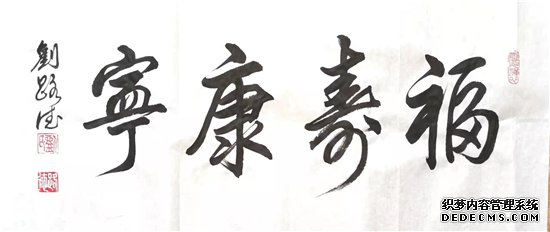 福壽康寧
劉路德
织梦内容管理系统
DEDECMS.COM